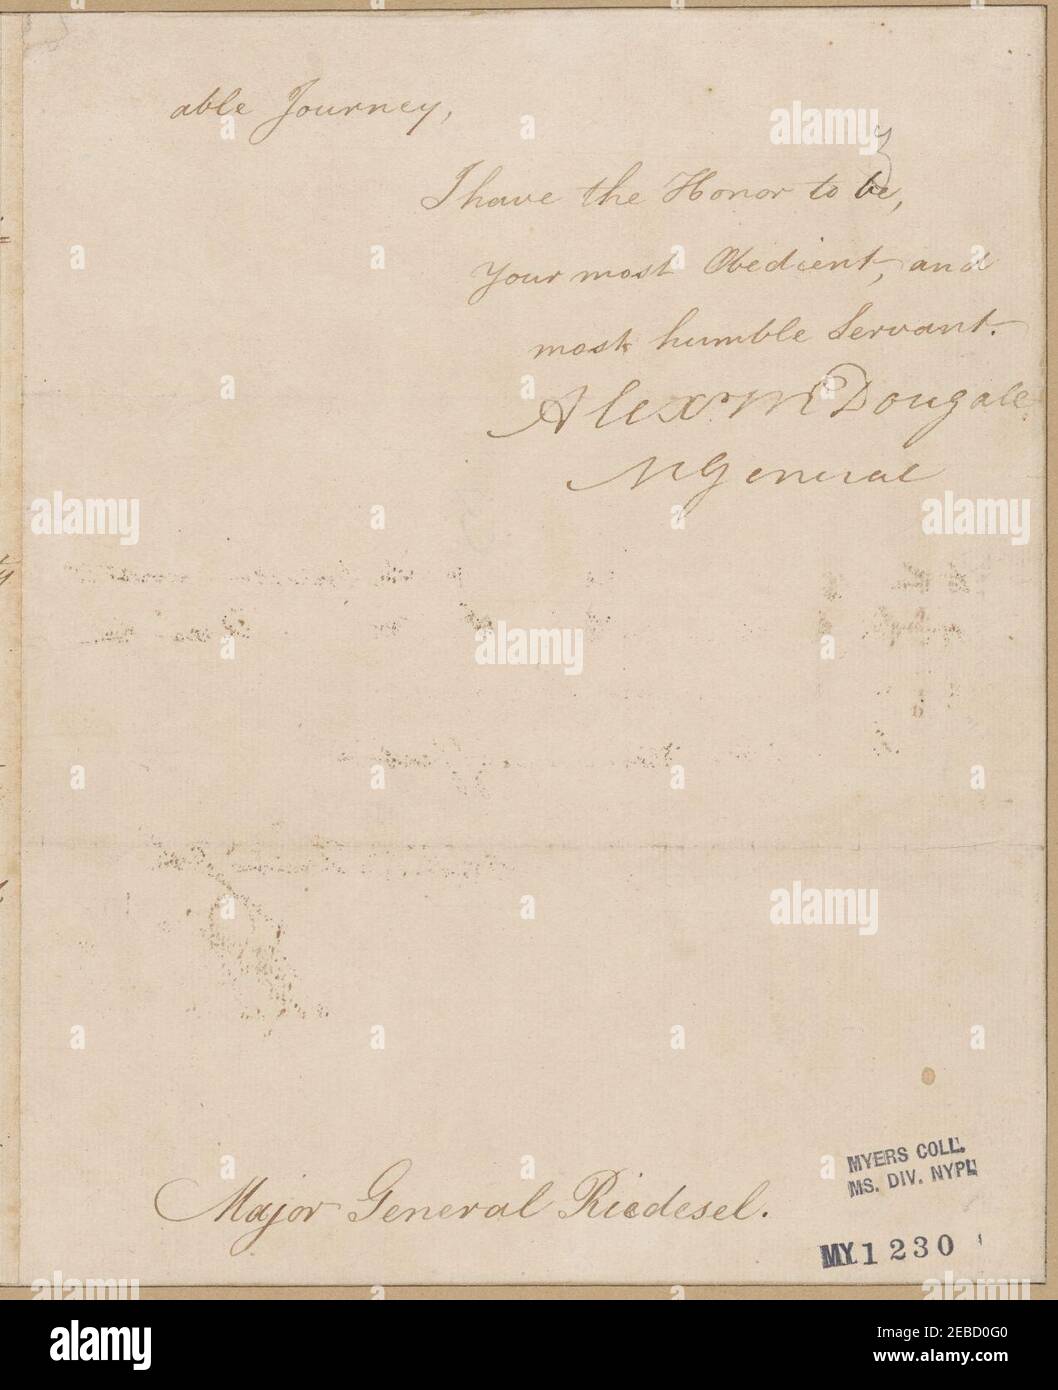 able Journey,
I have the Honor to be,
Your most Obedient, and
most humble Servant.
Alexr McDougall
MGeneral
Major General Riedesel.
MYERS COLL.
MS. DIV. NYPL
MY1230
alamy
Image ID: 2EBD0G0
www.alamy.com